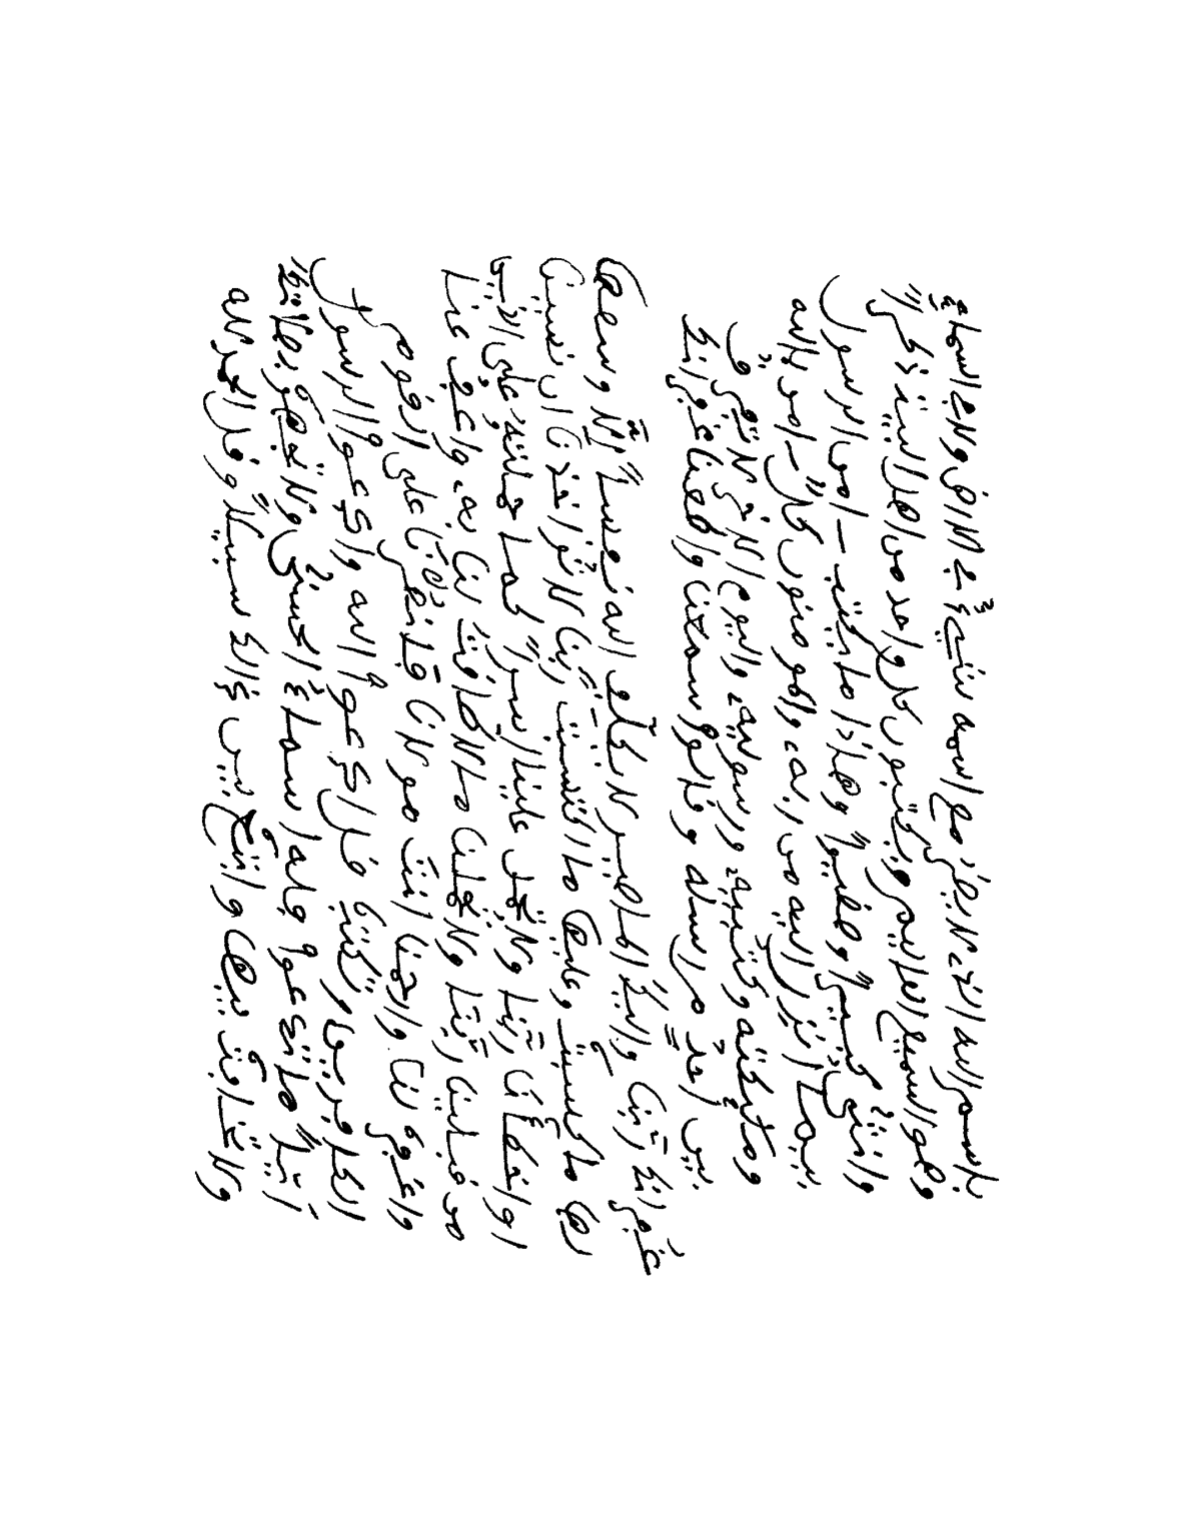 باسم الله الذي لا يضر مع اسمه شيء في الارض ولا في السماء
وهو السميع العليم ويكتبون كل واحد من اهل البيت ذكرا
وانثى كبيرا وصغيرا وهذا ما يكتب ءامن الرسول
بما انزل اليه من ربه والمومنون كل ءامن بالله
وملئكته وكتبه ورسوله واليوم الاخر لا نفرق
بين احد من رسله وقالوا سمعنا واطعنا غفرانك
غفرانك ربنا واليك المصير لا يكلف الله نفسا الا وسعها
لها ما كسبت وعليها ما اكتسبت ربنا لا تواخذنا ان نسينا
او اخطأنا ربنا ولا تحمل علينا اصرا كما حملته على الذين
من قبلنا ربنا ولا تحملنا ما لا طاقة لنا به واعف عنا
واغفر لنا وارحمنا انت مولانا فانصرنا على القوم
الكافرين وتكتب قل ادعوا الله او ادعوا
ايا ما تدعوا فله الاسماء الحسنى ولا تجهر بصلاتك
ولا تخافت بها وابتغ بين ذالك سبيلا وقل الحمد لله